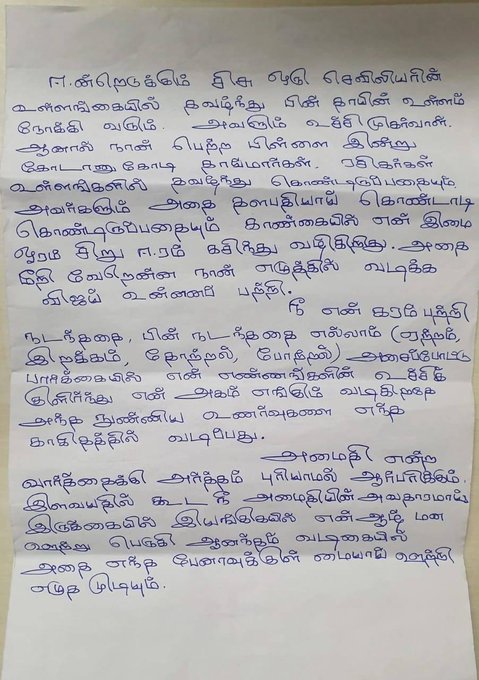 ஈன்றெடுக்கும் சிசு ஒரு செவிலியரின்
உள்ளங்கையில் தவழ்ந்து பின் தாயின் உள்ளம்
நோக்கி வரும். அவளும் உச்சிமுகர்வாள்.
ஆனால் நான் பெற்ற பிள்ளை இன்று
கோடானுகோடி தாய்மார்கள். ரசிகர்கள்
உள்ளங்களில் தவழ்ந்து கொண்டிருப்பதையும்
அவர்களும் அதை தளபதியாய் கொண்டாடி
கொண்டிருப்பதையும் காண்கையில் என் இமை
ஓரம் சிறு ஈரம் கசிந்து வழிகிறது. அதை
மீறி வேறென்ன நான் எழுத்தில் வடிக்க
விஜய் உன்னைப் பற்றி.
நீ என் கரம் பற்றி
நடந்ததை, பின் நடந்ததை எல்லாம் (ஏற்றம்,
இறக்கம், தோற்றல், போற்றல்) அசைப்போட்டு
பார்க்கையில் என் எண்ணங்களின் உச்சிக்
குளிர்ந்து என் அகம் எங்கும் வடிகிறதே
அந்த நுண்ணிய உணர்வுகளை எந்த
காகிதத்தில் வடிப்பது.
அமைதி என்ற
வார்த்தைக்கு அர்த்தம் புரியாமல் ஆர்பரிக்கும்.
இளவயதில் கூட நீ அமைதியின் அவதாரமாய்
இருக்கையில் இயங்குகையில் என் ஆழ் மன
ஊற்று பெருகி ஆனந்தம் வடிகையில்
அதை எந்த பேனாவுக்குள் மையாய் ஊற்றி
எழுத முடியும்.